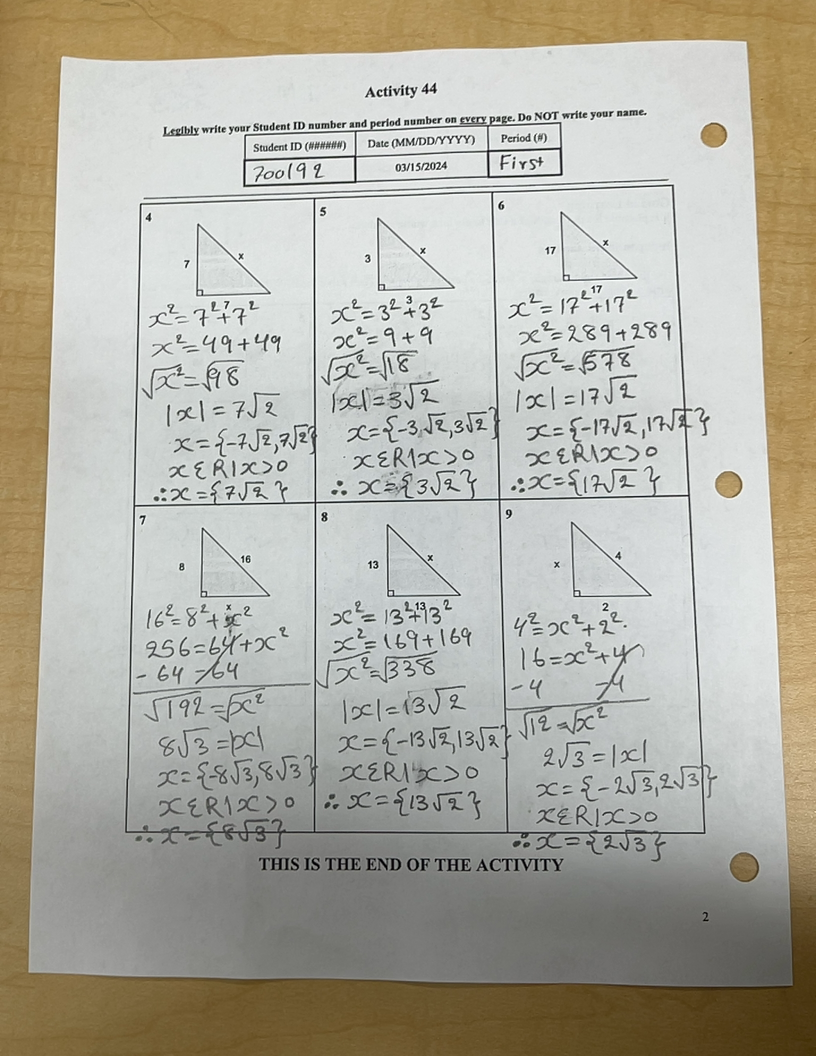 Activity 44
Legibly write your Student ID number and period number on every page. Do NOT write your name.
Student ID (######) Date (MM/DD/YYYY) Period (#)
700192 03/15/2024 First
4
7 x
7
x²=7²+7²
x²=49+49
√x²=√98
|x|=7√2
x={-7√2,7√2}
xƐR|x>0
∴x={7√2}
5
3 x
3
x²=3²+3²
x²=9+9
√x²=√18
|x|=3√2
x={-3√2,3√2}
xƐR|x>0
∴ x={3√2}
6
17 x
17
x²=17²+17²
x²=289+289
√x²=√578
|x|=17√2
x={-17√2,17√2}
xƐR|x>0
∴x={17√2}
7
8 16
x
16²=8²+x²
256=64+x²
-64 -64
√192=√x²
8√3=|x|
x={-8√3,8√3}
xƐR|x>0
∴x={8√3}
8
13 x
13
x²=13²+13²
x²=169+169
√x²=√338
|x|=13√2
x={-13√2,13√2}
xƐR|x>0
∴x={13√2}
9
x 4
2
4²=x²+2²
16=x²+4
-4 -4
√12=√x²
2√3=|x|
x={-2√3,2√3}
xƐR|x>0
∴x={2√3}
THIS IS THE END OF THE ACTIVITY
2